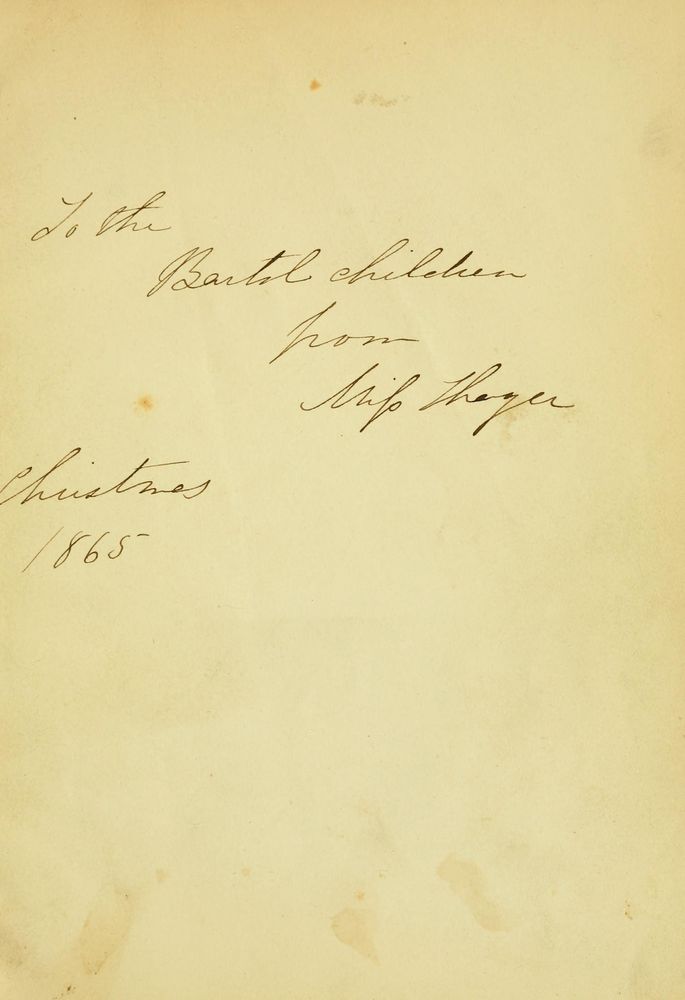 To the
Bartol children
from
Miss Thayer
Christmas
1865